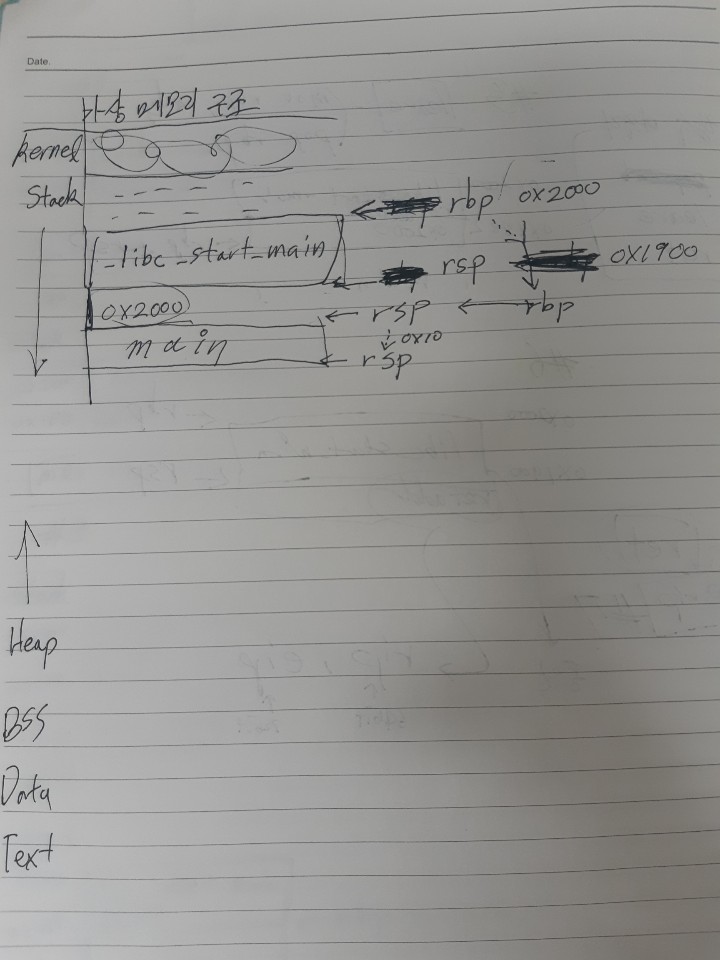 Date.
가상 메모리 구조
kernel
Stack
rbp 0x2000
_libc_start_main
rsp 0x1900
0x2000
rsp rbp
0x10
main
rsp
Heap
BSS
Data
Text